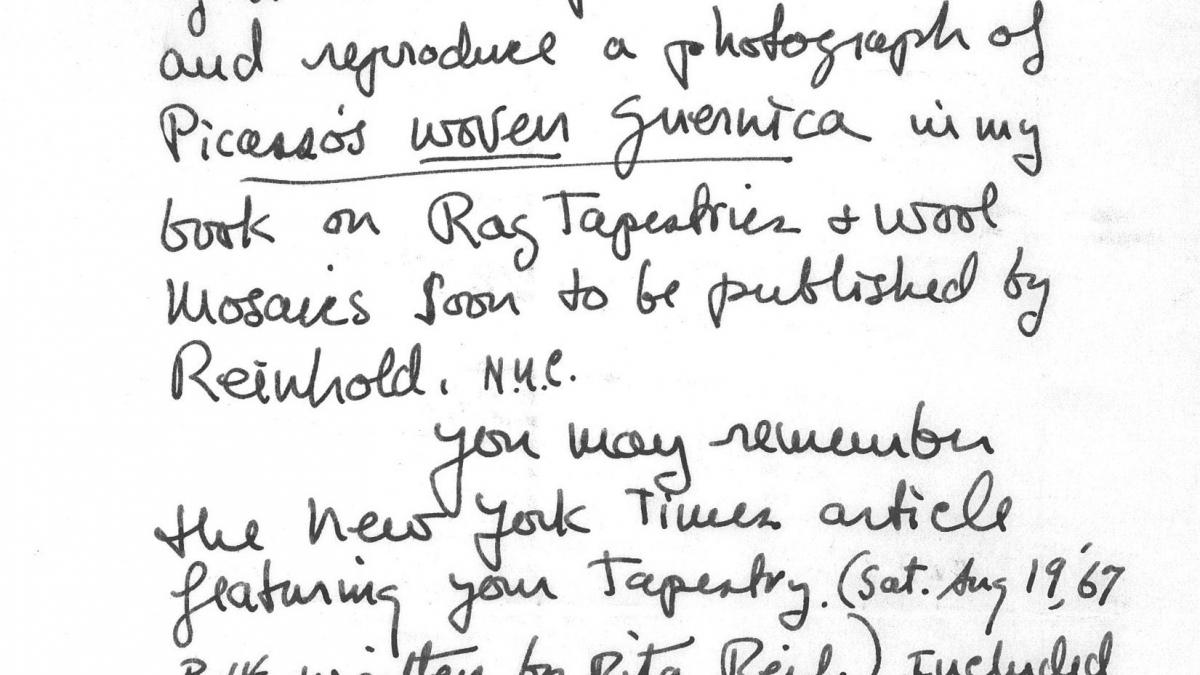 and reproduce a photograph of
Picasso's woven Guernica in my
book on Rag Tapestries & Wool
Mosaics soon to be published by
Reinhold. N.Y.C.
You may remember
the New York Times article
featuring your Tapestry. (Sat. Aug 19, '67
written by Rita Reif.) Included